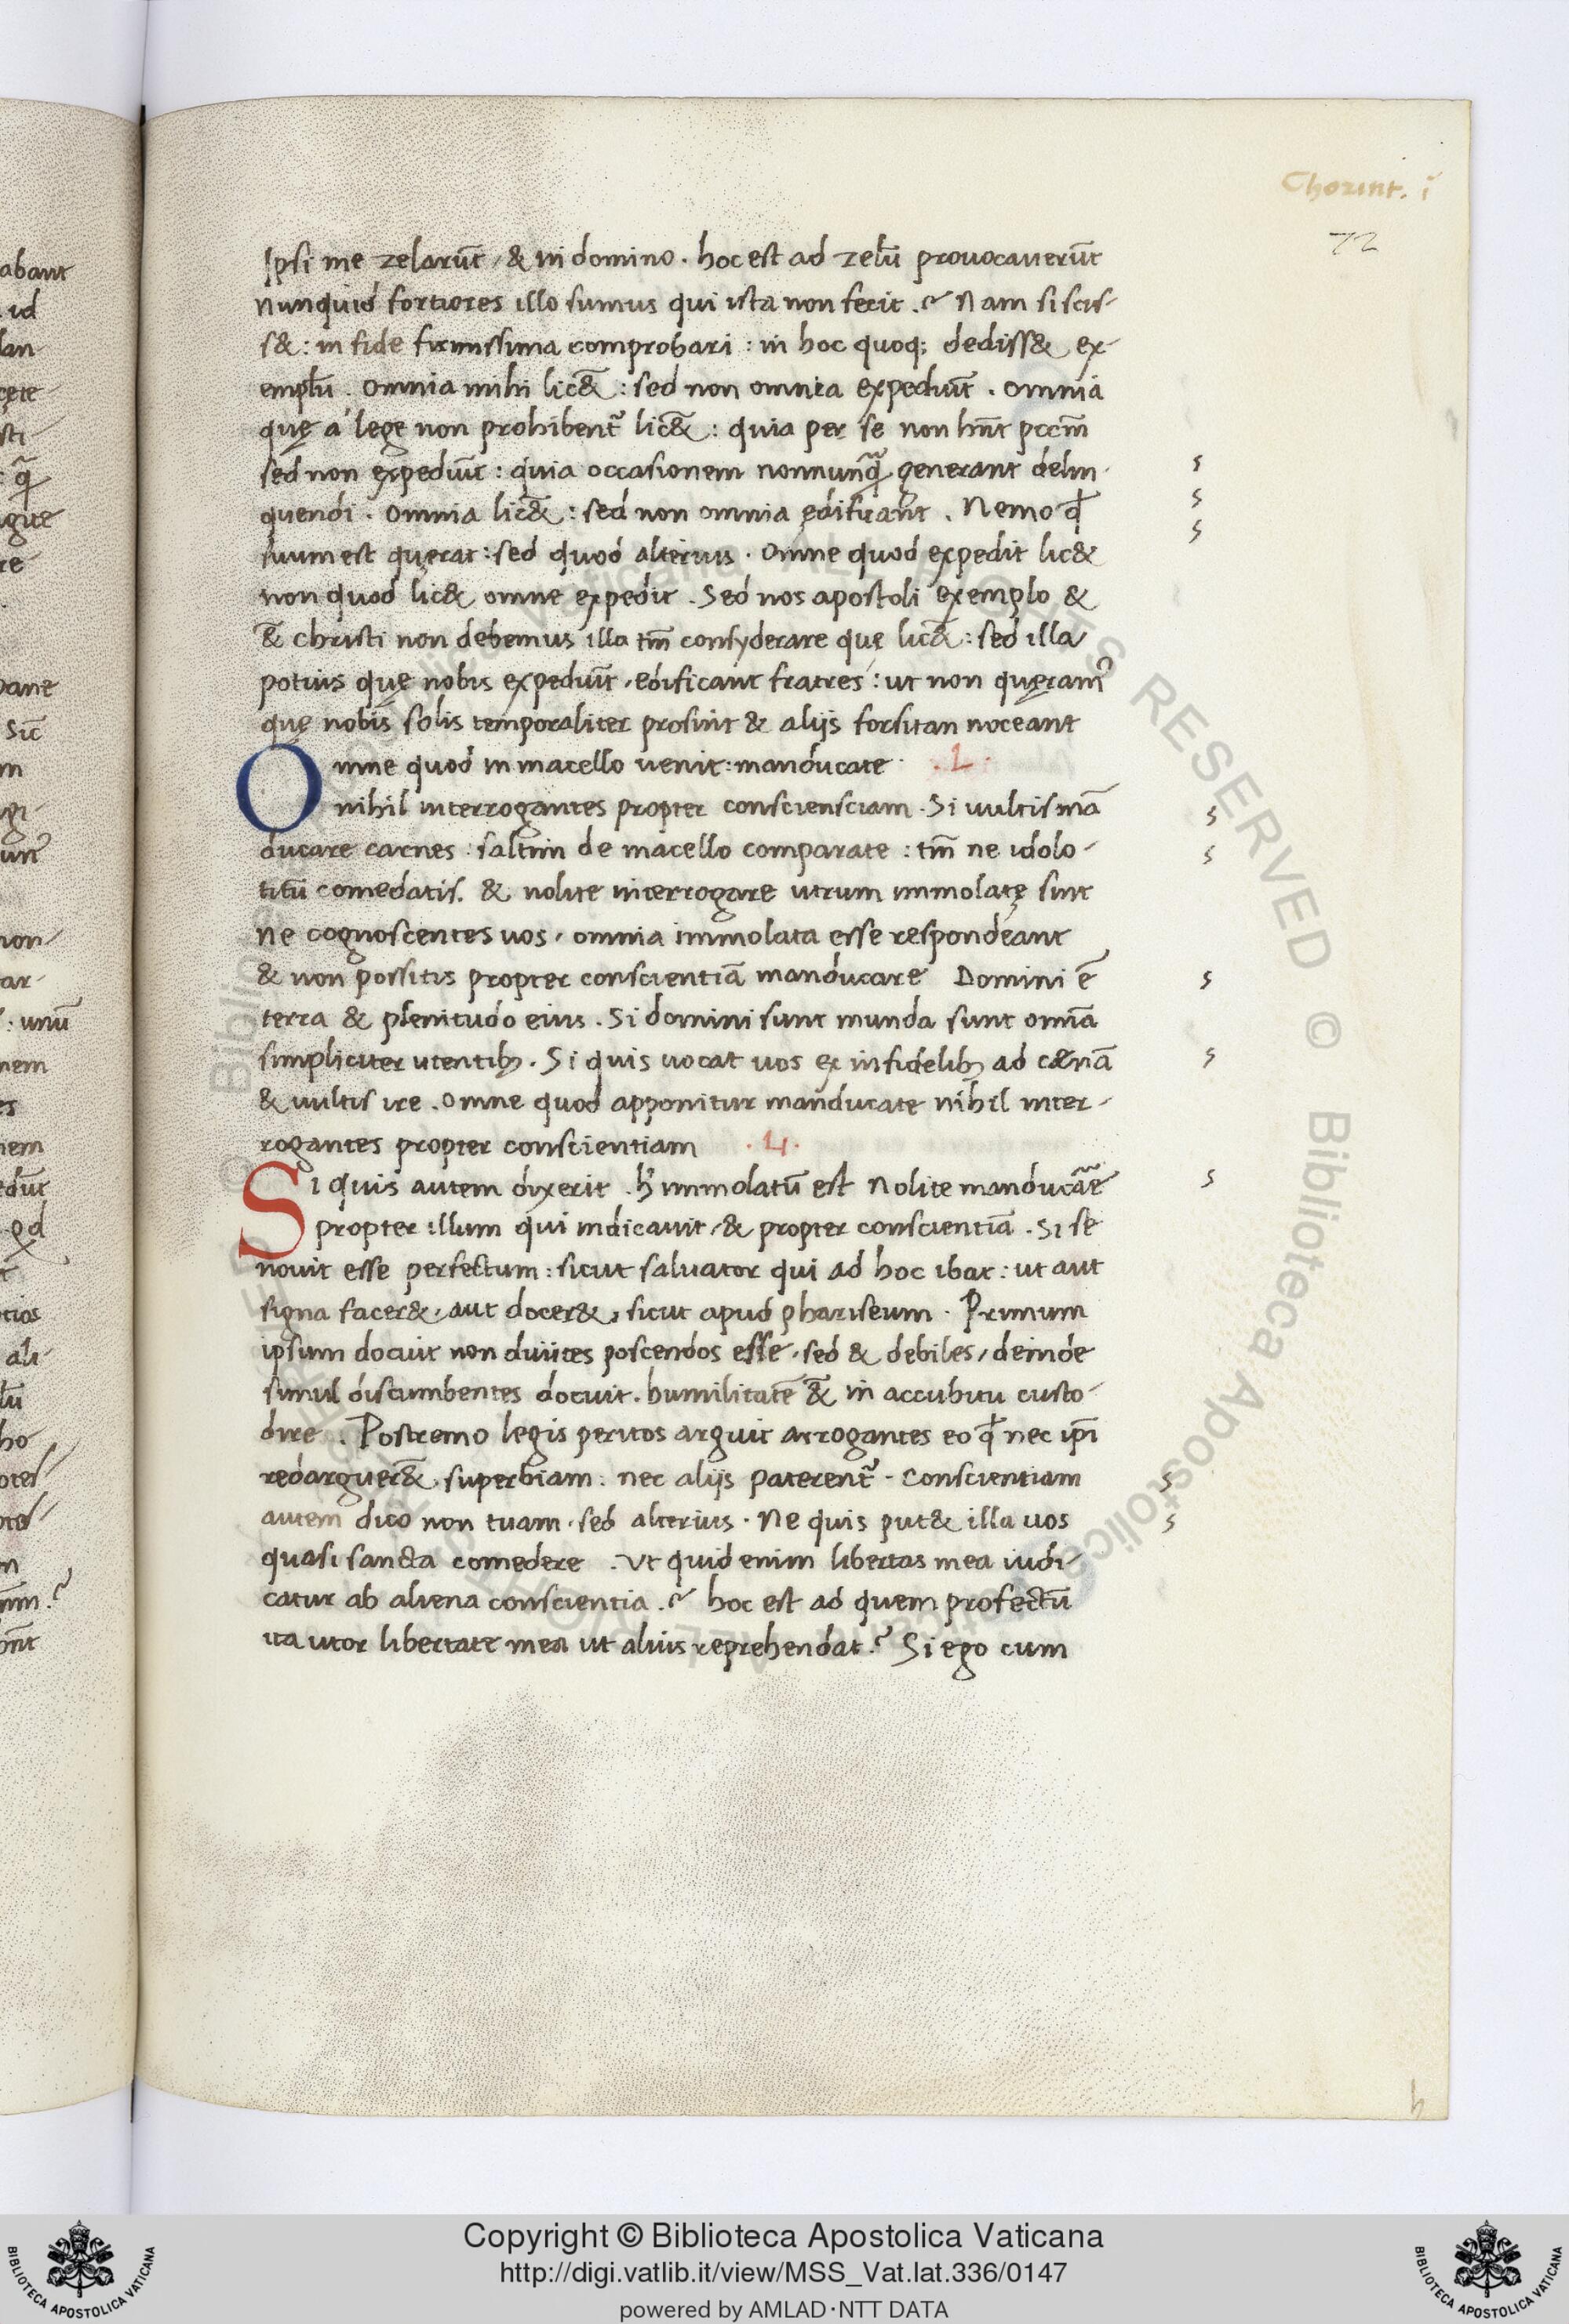 Chorint. i
72
Ipsi me zelarūt, & in domino. hoc est ad zelū prouocauerūt
Nunquid fortiores illo sumus qui ista non fecit.? Nam si scis-
s&: in fide firmissima comprobari: in hoc quoq; dediss& ex-
emplū. Omnia mihi lic&̄: sed non omnia expediūt. Omnia
quę á lege non prohibent̄ lic&̄: quia per se non hn̄t pccm̄
sed non expediūt: quia occasionem nonnunq̄ generant delin-
quendi. Omnia lic&̄: sed non omnia ędificant. Nemo qđ
suum est quęrat: sed quod alterius. Omne quod expedit lic&
non quod lic& omne expedit. Sed nos apostoli exemplo &
&̄ christi non debemus illa tm̄ consyderare quę lic&̄: sed illa
potius quę nobis expediūt, edificant fratres: ut non quęram᾽
quę nobis solis temporaliter prosint & alijs forsitan noceant
Omne quod in macello uenit: manducate .L.
nihil interrogantes propter consciensciam. Si uultis mā
ducare carnes: saltim de macello comparate: tm̄ ne idolo-
titū comedatis. & nolite interrogare utrum immolatę sint
ne cognoscentes uos, omnia immolata esse respondeant
& non possitis propter conscientiā manducare Domini ē
terra & plenitudo eius. Si domini sunt munda sunt omīa
simpliciter utentibꝫ. Si quis uocat uos ex infidelibꝫ ad cænā
& uultis ire. Omne quod apponitur manducate nihil inter-
rogantes propter conscientiam .L.
Si quis autem dixerit. h᾽ immolatū est Nolite manducāe
propter illum qui indicauit, & propter conscientiā. Si se
nouit esse perfectum: sicut saluator qui ad hoc ibat: ut aut
signa facer&, aut docer&, sicut apud phariseum. Primum
ipsum docuit non diuites poscendos esse, sed & debiles, deinde
simul discumbentes docuit. humilitatē &̄ in accubitu custo-
dire. Postremo legis peritos arguit arrogantes eo qđ nec ipī
redarguer&̄, superbiam: nec alijs paterent̄. Conscientiam
autem dico non tuam, sed alterius. Ne quis put& illa uos
quasi san&a comedere. Ut quid enim libertas mea iudi-
catur ab aliena conscientia.? hoc est ad quem profectū
ita utor libertate mea ut alius reprehendat? Si ego cum
h
Copyright © Biblioteca Apostolica Vaticana
http://digi.vatlib.it/view/MSS_Vat.lat.336/0147
powered by AMLAD·NTT DATA